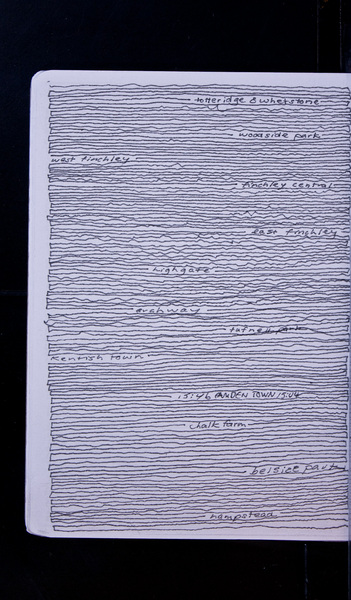 totteridge & whetstone
woodside park
west finchley
finchley central
east finchley
highgate
archway
tufnell park
kentish town
15:46 CAMDEN TOWN 15:04
chalk farm
belsize park
hampstead